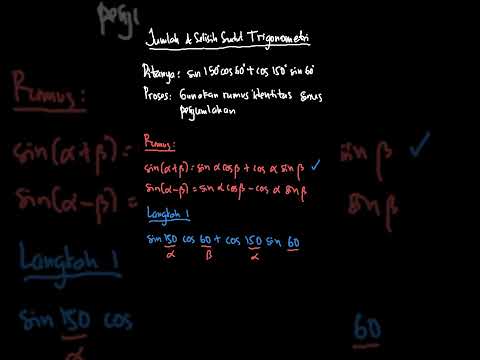 Jumlah & Selisih Sudut Trigonometri
Ditanya: sin 150° cos 60° + cos 150° sin 60°
Proses: Gunakan rumus identitas sinus
penjumlahan
Rumus:
sin(α+β) = sin α cos β + cos α sin β ✓
sin(α-β) = sin α cos β - cos α sin β
Langkah 1
sin 150 cos 60 + cos 150 sin 60
α β α
Rumus:
sin(α+β) = sin β ✓
sin(α-β) = sin β
Langkah 1
sin 150 cos 60
α